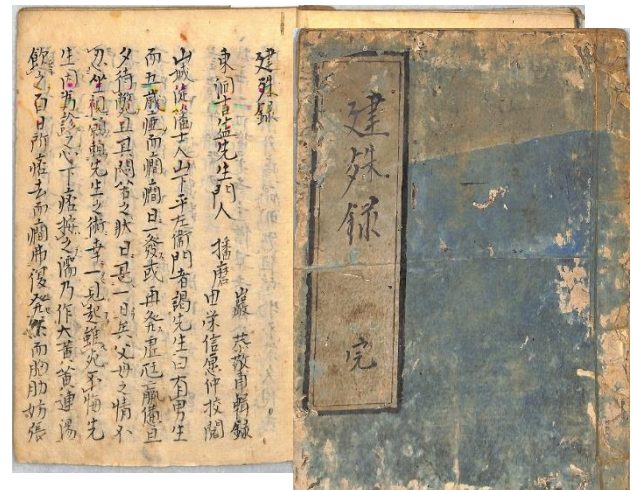 建殊録
東洞吉益先生門人 播磨
巖恭敬甫輯録
田栄信愿仲校閲
山城淀藩士人山下平左衛門者謁先生曰有男生
而五歳瘂而癇癇日一發或再発虚尫羸憊旦
夕待斃且其悶苦之状日甚一日矣父母之情不
忍坐視願賴先生之術幸一見起雖死不悔先
生因為診之心下痞按之濡乃作大黄黄連湯
飲之百日所痞去而癇弗復発然而胸肋妨張
建殊録 完